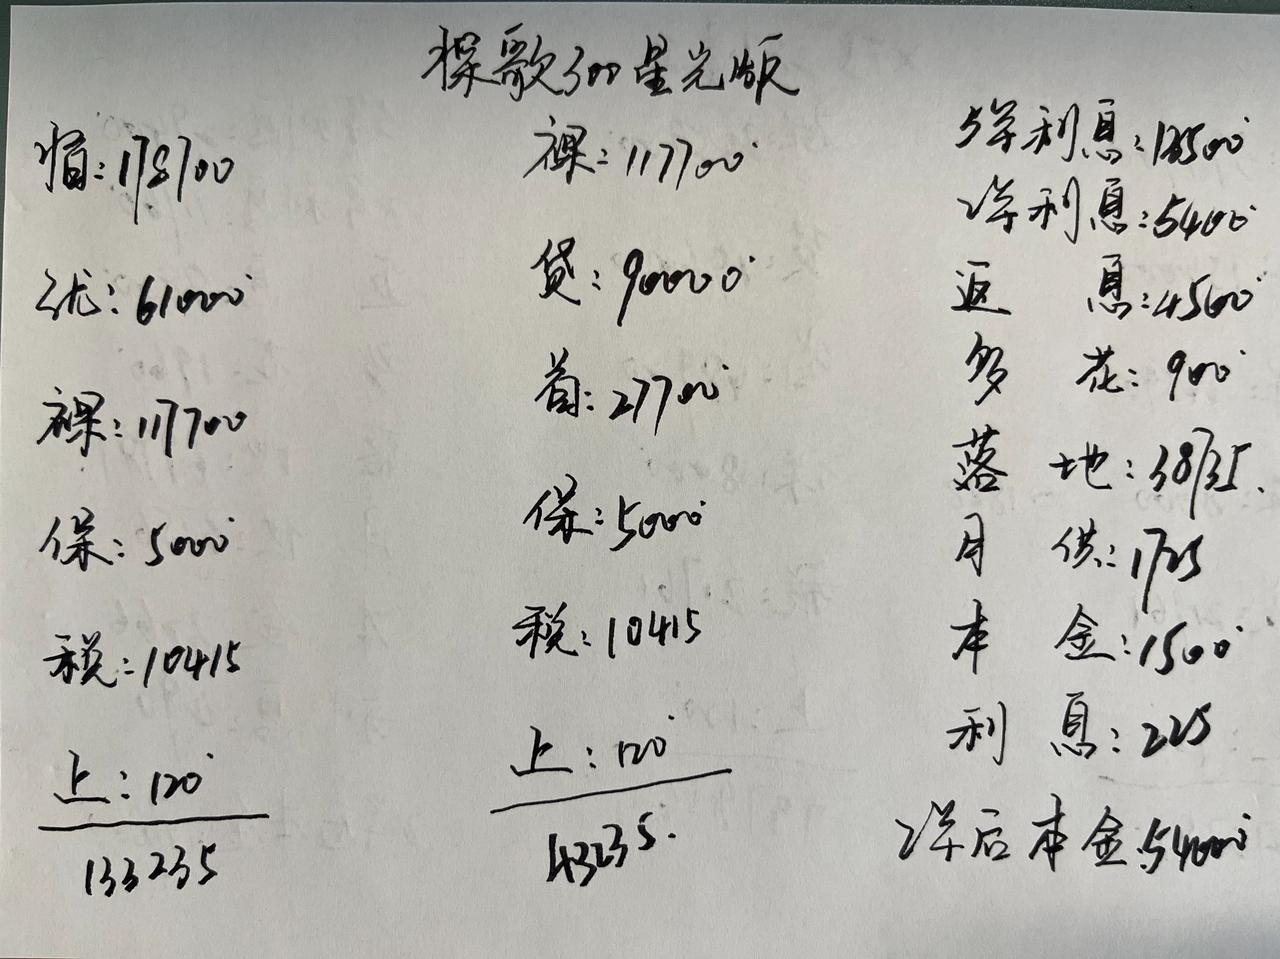 探歌300星光版
指:178700
优:61000
裸:117700
保:5000
税:10415
上:120
133235
裸:117700
贷:90000
首:27700
保:5000
税:10415
上:120
43235.
5年利息:13500
2年利息:5400
返息:4500
多花:900
落地:38735.
月供:1725
本金:1500
利息:225
2年后本金:54000